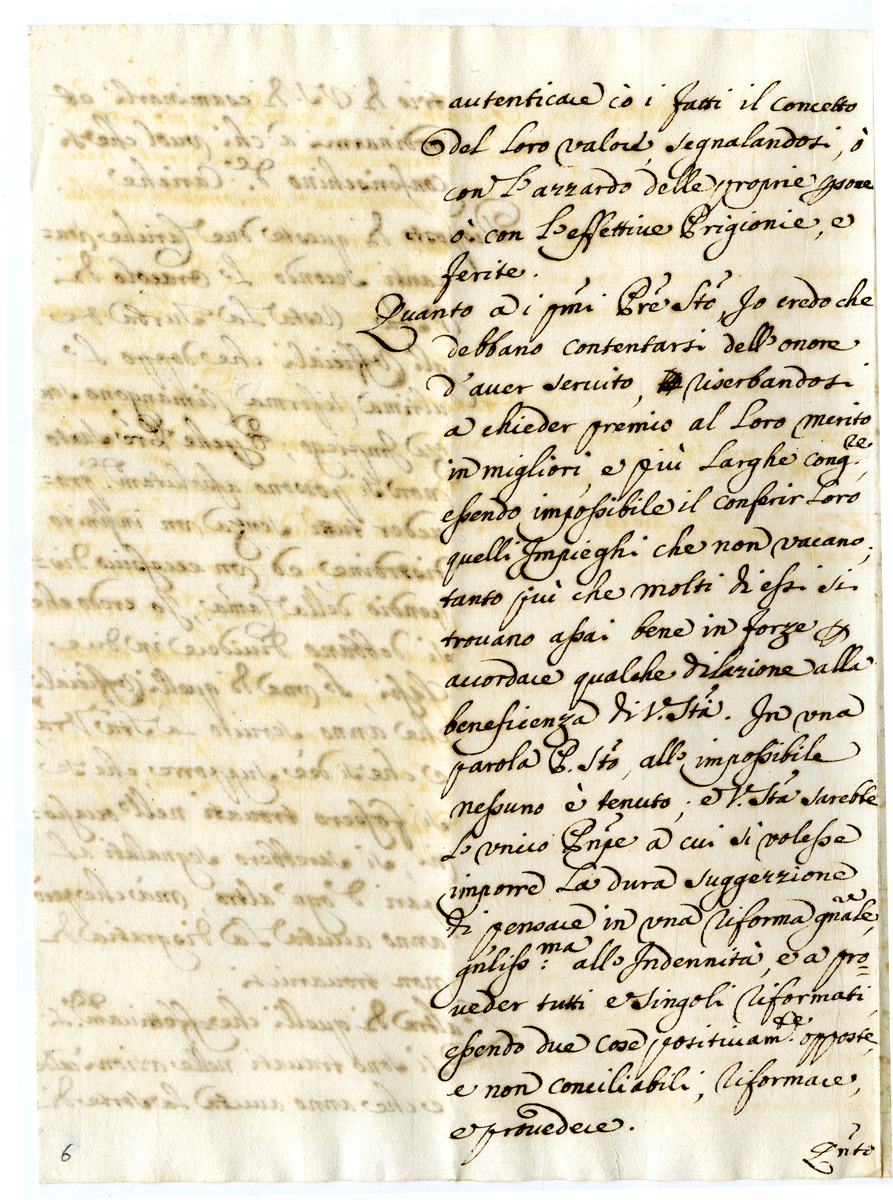 autenticare cõ i fatti il concetto
del Loro valore, segnalandosi, ò
con L'azzardo delle proprie psone
ò con L'effettive Prigionie, e
ferite.
Quanto a i pmi Bre Sto, Io credo che
debbano contentarsi dell'onore
d'aver servito, riserbandosi
a chieder premio al Loro merito
in migliori, e più Larghe cong.re,
essendo impossibile il conferir Loro
quelli Impieghi che non vacano;
tanto più che molti di essi si
trovano assai bene in forze p
accordare qualche dilazione alla
beneficenza di V. Stà. In una
parola B. Sto, all'impossibile
nessuno è tenuto; e V. Stà sarebbe
L'unico Pnpe a cui si volesse
imporre La dura suggezzione
di pensare in una riforma gnale,
gnliss:ma all'Indennità, e a pro=
veder tutti e singoli riformati,
essendo due cose positivam.te opposte,
e non conciliabili, riformare,
e provedere.
Qnto
6